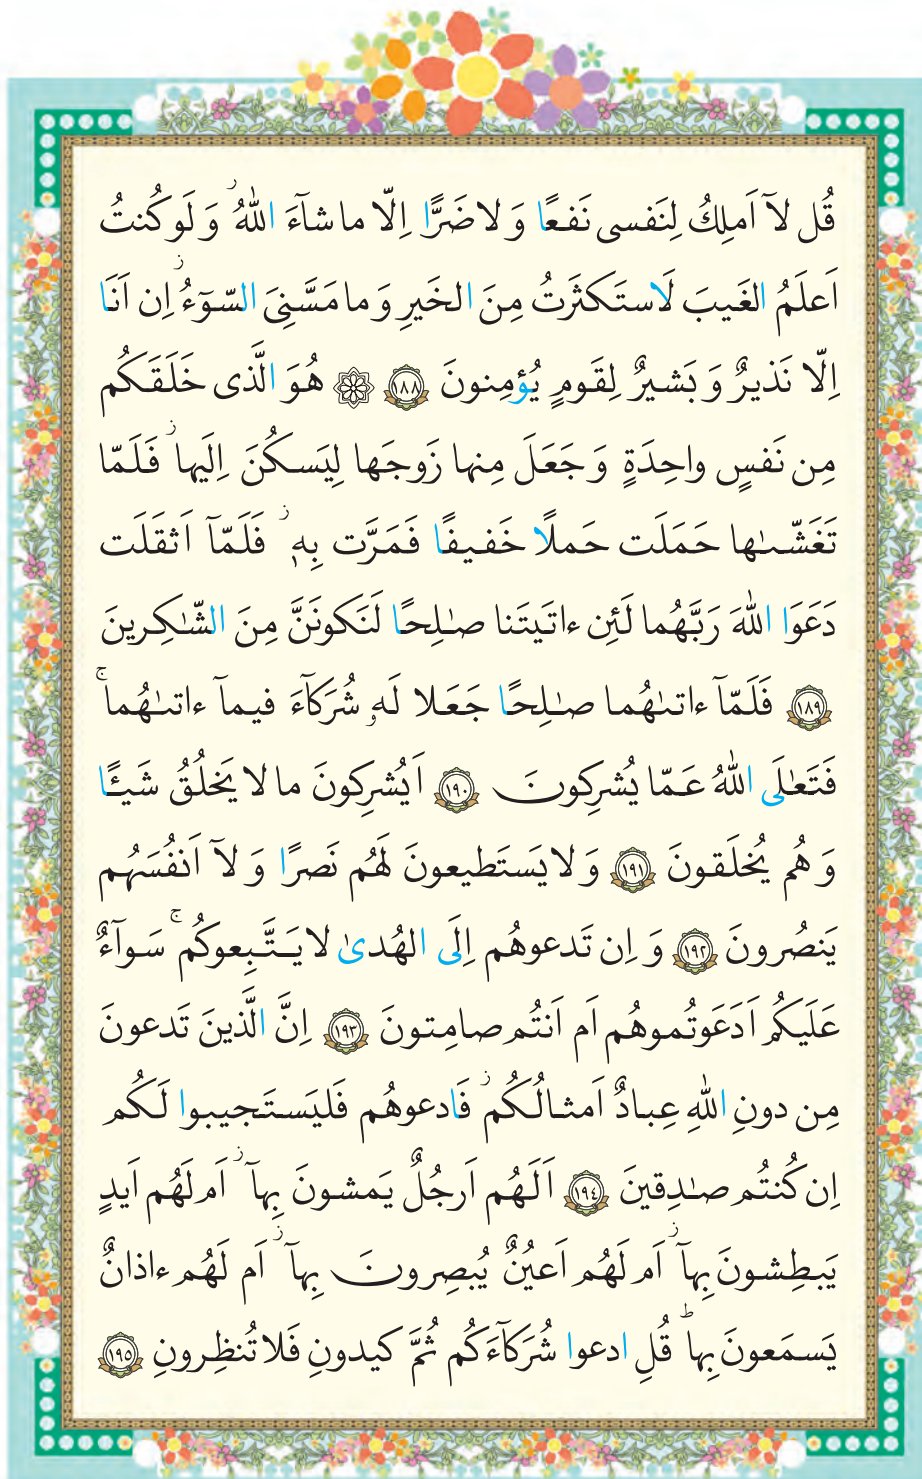 قُل لآ اَملِكُ لِنَفسی نَفعًا وَ لا ضَرًّا اِلّا ما شآءَ اللّٰهُ ۚ وَ لَو كُنتُ
اَعلَمُ الغَيبَ لَاستَكثَرتُ مِنَ الخَيرِ وَ ما مَسَّنِیَ السّوٓءُ ۚ اِن اَنَا
اِلّا نَذيرٌ وَ بَشيرٌ لِقَومٍ يُؤمِنونَ ﴿١٨٨﴾ ۞ هُوَ الَّذی خَلَقَكُم
مِن نَفسٍ واحِدَةٍ وَ جَعَلَ مِنها زَوجَها لِيَسكُنَ اِلَيها ۖ فَلَمّا
تَغَشّىٰها حَمَلَت حَملًا خَفيفًا فَمَرَّت بِهٖ ۖ فَلَمّآ اَثقَلَت
دَعَوَا اللّٰهَ رَبَّهُما لَئِن ءاتَيتَنا صٰلِحًا لَنَكونَنَّ مِنَ الشّٰكِرينَ
﴿١٨٩﴾ فَلَمّآ ءاتىٰهُما صٰلِحًا جَعَلا لَهٗ شُرَكآءَ فيمآ ءاتىٰهُما ۚ
فَتَعٰلَی اللّٰهُ عَمّا يُشرِكونَ ﴿١٩٠﴾ اَيُشرِكونَ ما لا يَخلُقُ شَيـًٔا
وَ هُم يُخلَقونَ ﴿١٩١﴾ وَ لا يَستَطيعونَ لَهُم نَصرًا وَ لآ اَنفُسَهُم
يَنصُرونَ ﴿١٩٢﴾ وَ اِن تَدعوهُم اِلَی الهُدىٰ لا يَتَّبِعوكُم ۚ سَوآءٌ
عَلَيكُم اَدَعَوتُموهُم اَم اَنتُم صامِتونَ ﴿١٩٣﴾ اِنَّ الَّذينَ تَدعونَ
مِن دونِ اللّٰهِ عِبادٌ اَمثالُكُم ۖ فَادعوهُم فَليَستَجيبوا لَكُم
اِن كُنتُم صٰدِقينَ ﴿١٩٤﴾ اَلَهُم اَرجُلٌ يَمشونَ بِهآ ۖ اَم لَهُم اَيدٍ
يَبطِشونَ بِهآ ۖ اَم لَهُم اَعيُنٌ يُبصِرونَ بِهآ ۖ اَم لَهُم ءاذانٌ
يَسمَعونَ بِها ۗ قُلِ ادعوا شُرَكآءَكُم ثُمَّ كيدونِ فَلا تُنظِرونِ ﴿١٩٥﴾